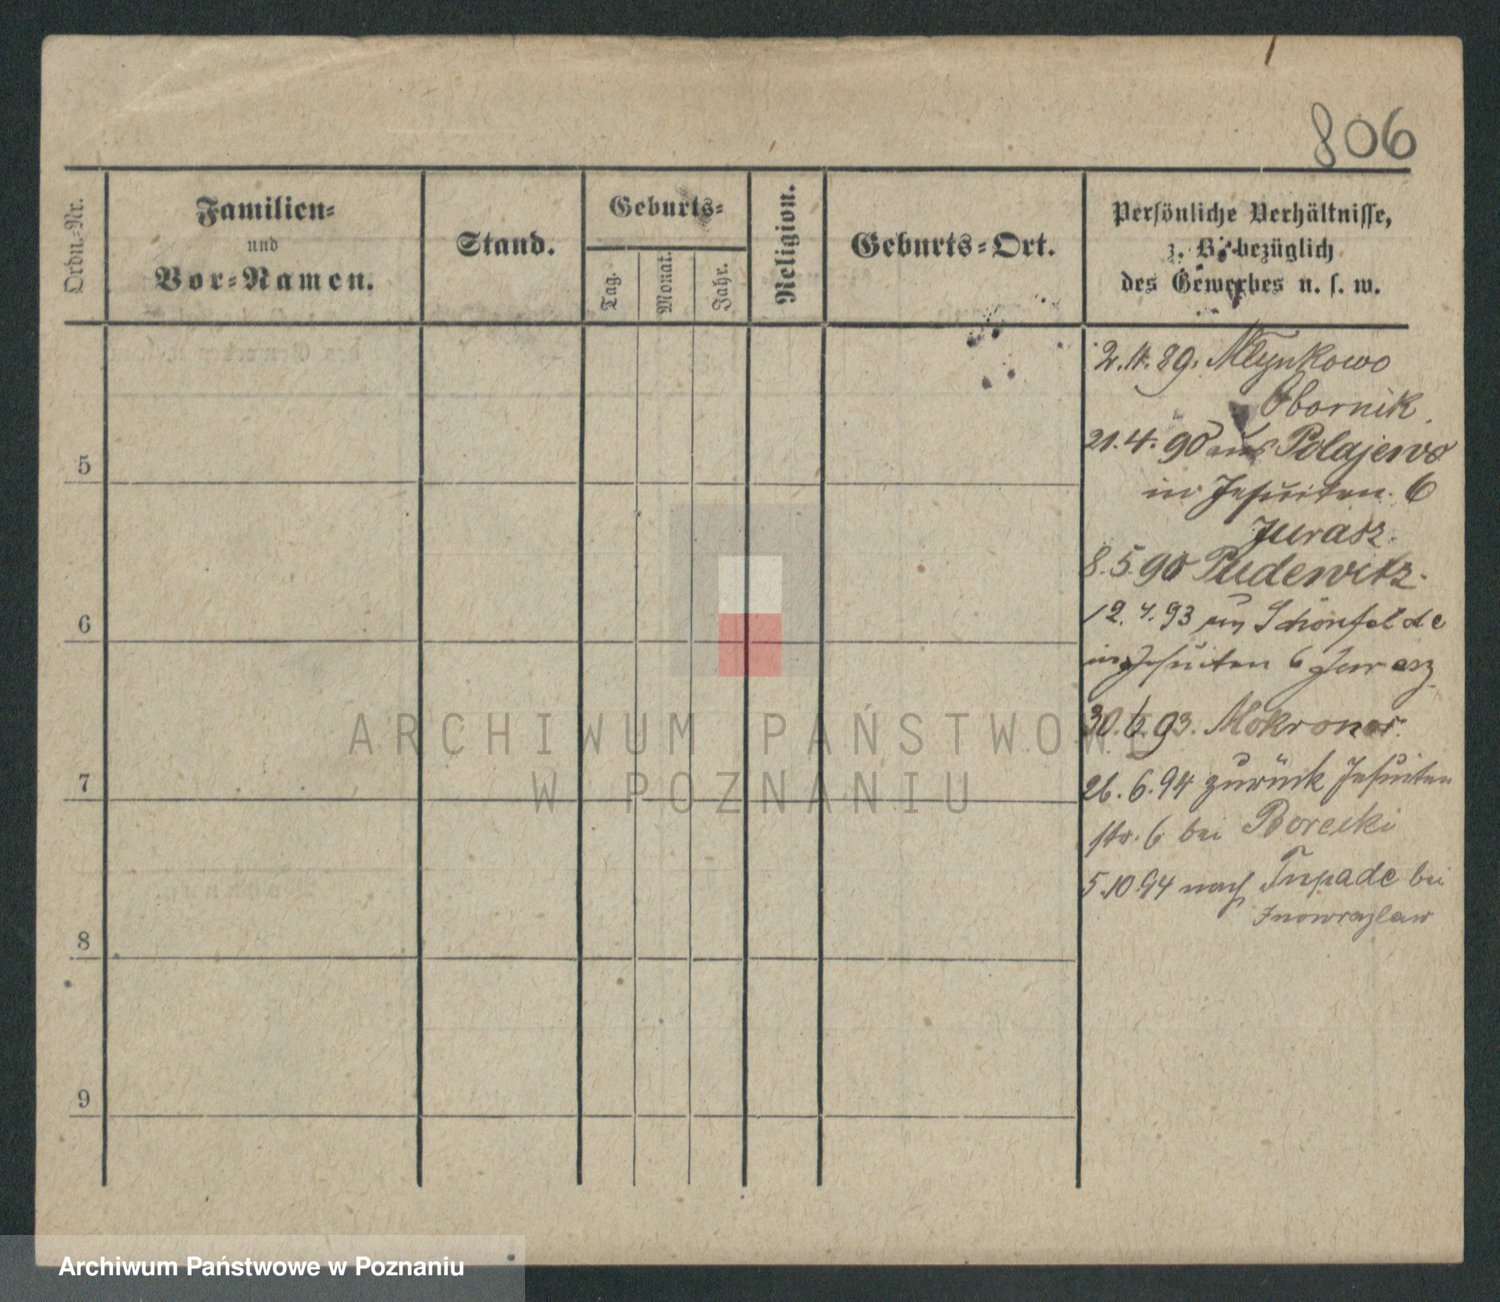 806
Ordn.-Nr.
Familien-
und
Vor-Namen.
Stand.
Geburts-
Tag.
Monat.
Jahr.
Religion.
Geburts-Ort.
Persönliche Verhältnisse,
z. B. bezüglich
des Gewerbes u. s. w.
2.11.89. Młynkowo
Obornik.
21.4.90 aus Polajewo
in Jesuiten. 6
Jurasz.
8.5.90 Pudewitz.
12.4.93 Schönfelde
in Jesuiten 6 Jurasz
30.6.93. Mokronos.
26.6.94 zurück Jesuiten
str. 6 bei Borecki
5.10.94 nach Tupade bei
Inowrazlaw
5
6
7
8
9
ARCHIWUM PAŃSTWOWE
W POZNANIU
Archiwum Państwowe w Poznaniu